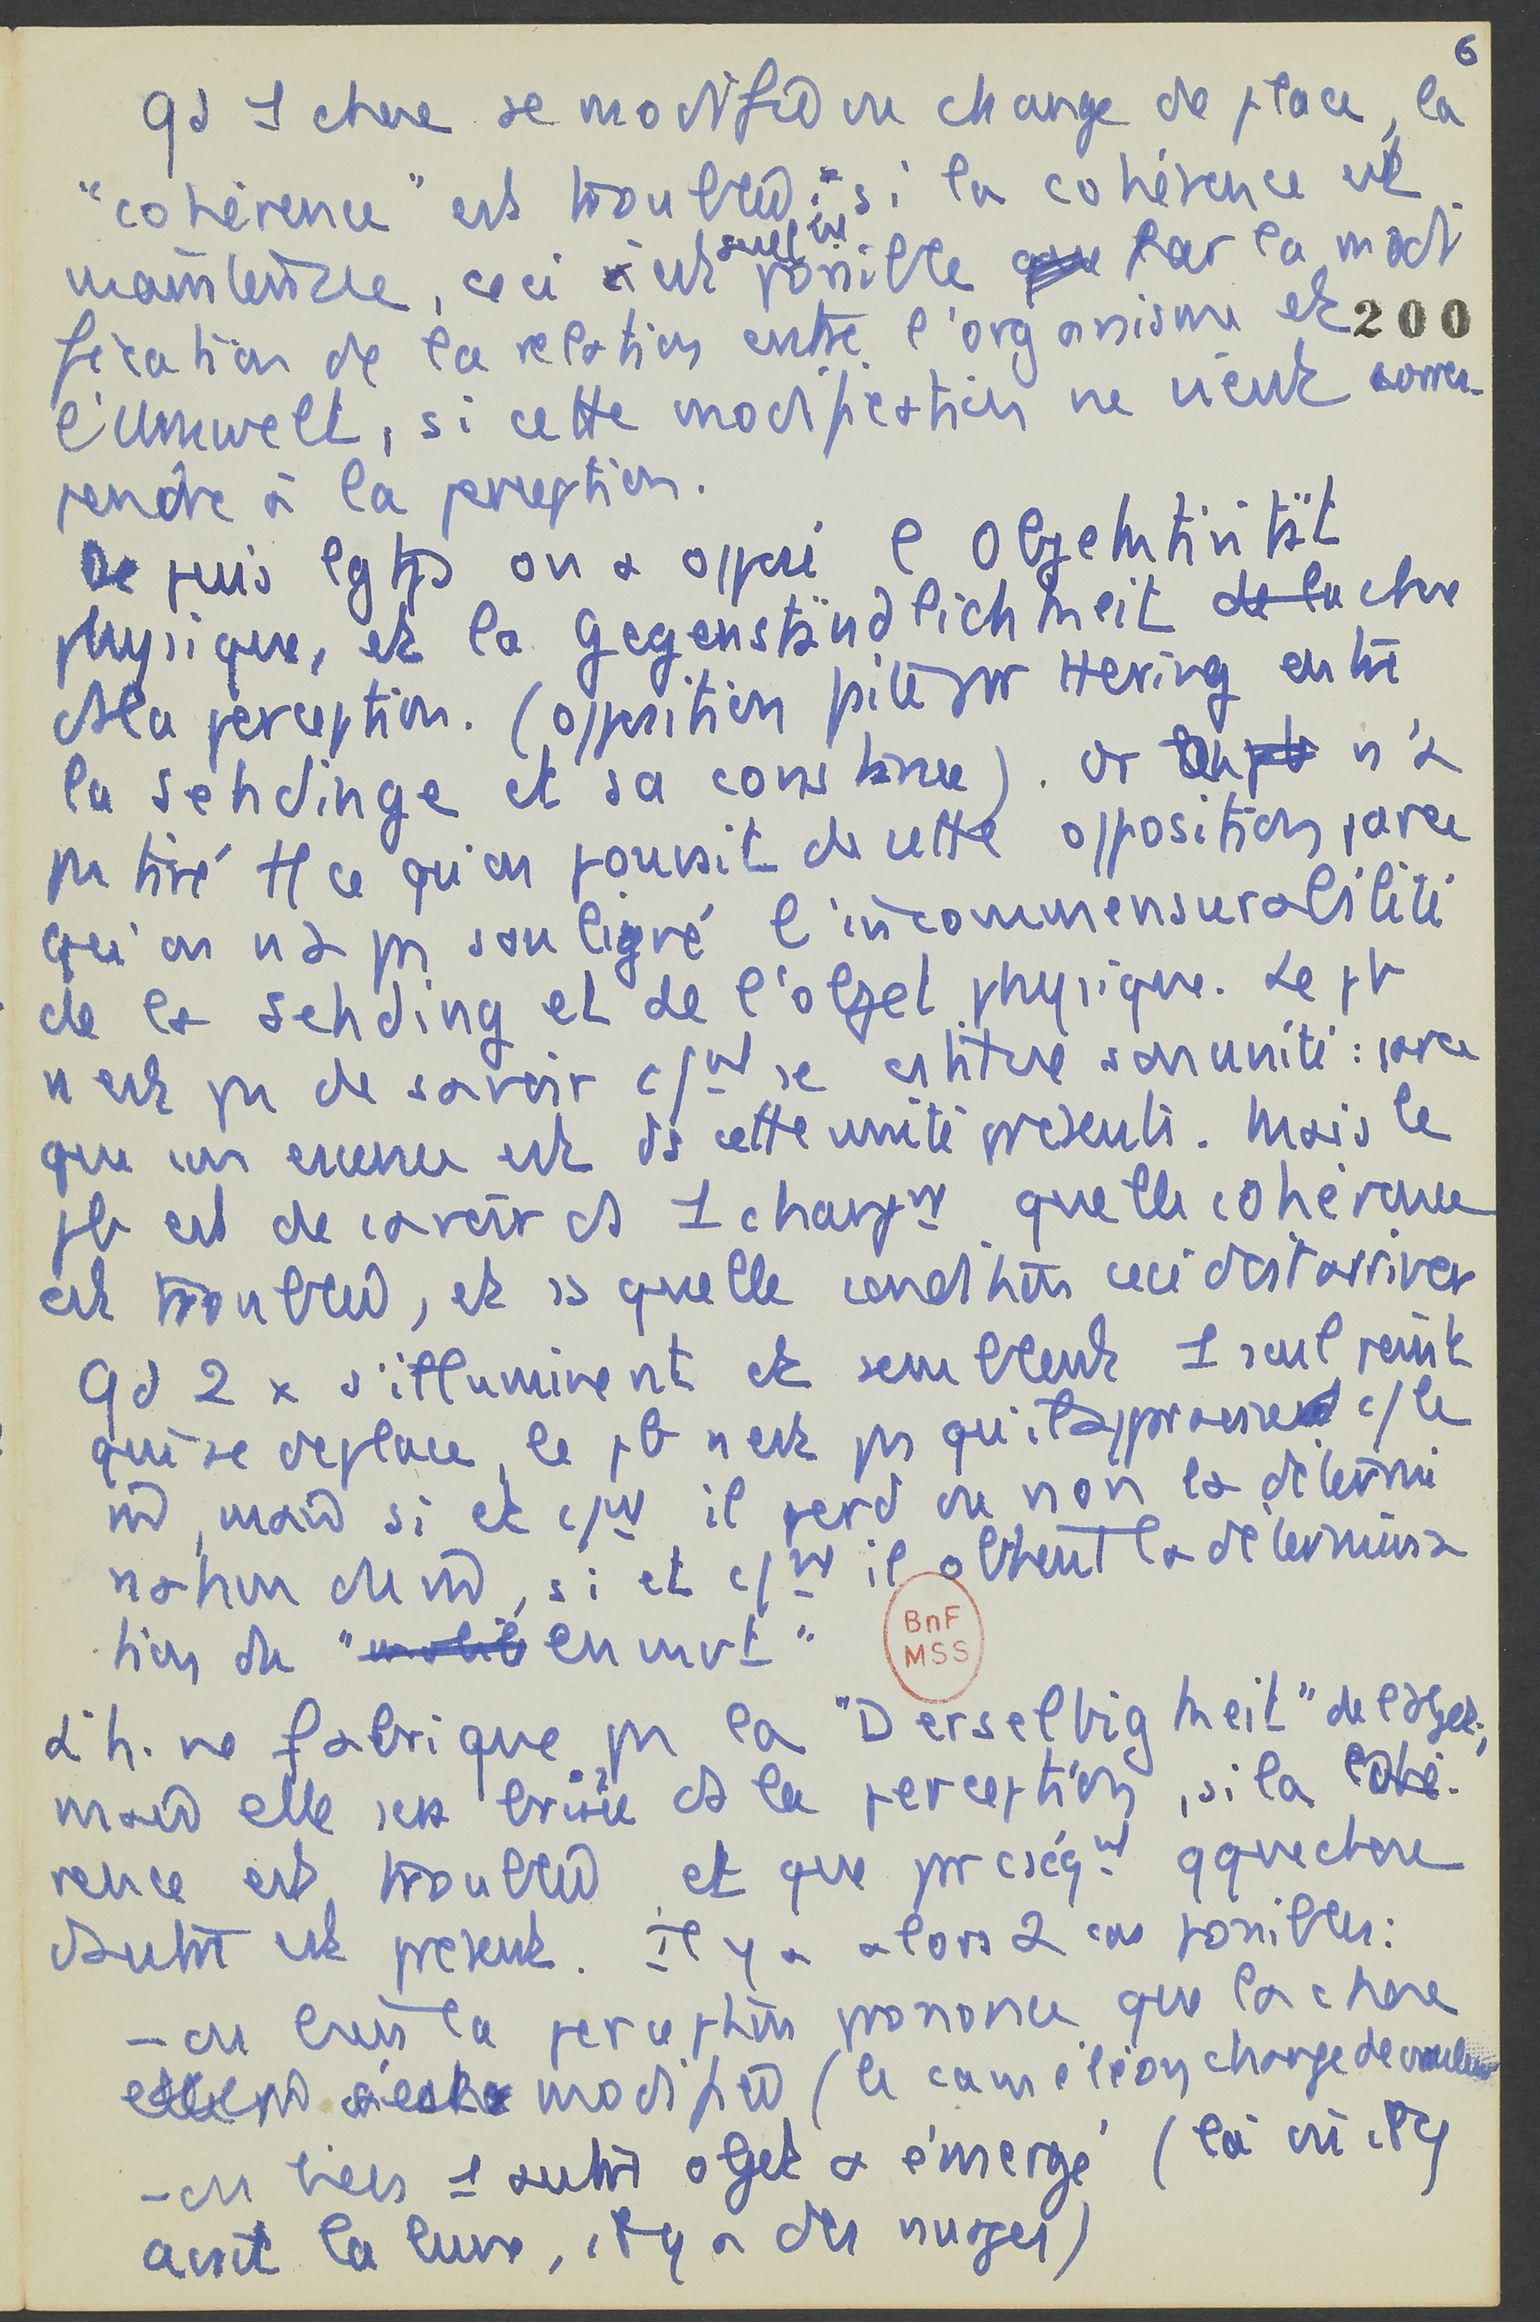 6
qd 1 chose se modifie ou change de place, la
"cohérence" est troublée ; si la cohérence est
maintenue, ceci est seul possible par la modi
fication de la relation entre l'organisme et
200
l'Umwelt, si cette modification ne vient corres-
pendre à la perception.
Depuis lgtps on a opposé l'Objektivität
physique, et la Gegenständlichkeit de la chose
de la perception. (opposition faite par Hering entre
la sehdinge et sa constance). or on n'a
pas tiré tt ce qu'on pouvait de cette opposition, parce
qu'on n'a pas souligné l'incommensurabilité
de la Sehding et de l'objet physique. Le pb
n'est pas de savoir c/mt se constitue son unité : parce
que son essence est ds cette unité présente. Mais le
pb est de savoir ds 1 changt quelle cohérence
est troublée, et ss quelle condition ceci doit arriver
Qd 2 x s'illuminent et semblent 1 seul point
qui se déplace, le pb n'est pas qu'il apparaisse c/le
m̂, mais si et c/mt il perd ou non la détermi
nation du m̂, si et c/mt il obtient la détermina
tion du "mobile en mvt"
BnF
MSS
L'h. ne fabrique pas la "Derselbigkeit" de l'objet;
mais elle sera brisée ds la perception, si la cohé-
rence est troublée et que par cséqt qque chose
d'autre est présent. Il y a alors 2 cas possibles :
- ou bien la perception prononce que la chose
s'est modifiée (le caméléon change de couleur
- ou bien 1 autre objet a émergé (là où il y
avait la lune, il y a des nuages)